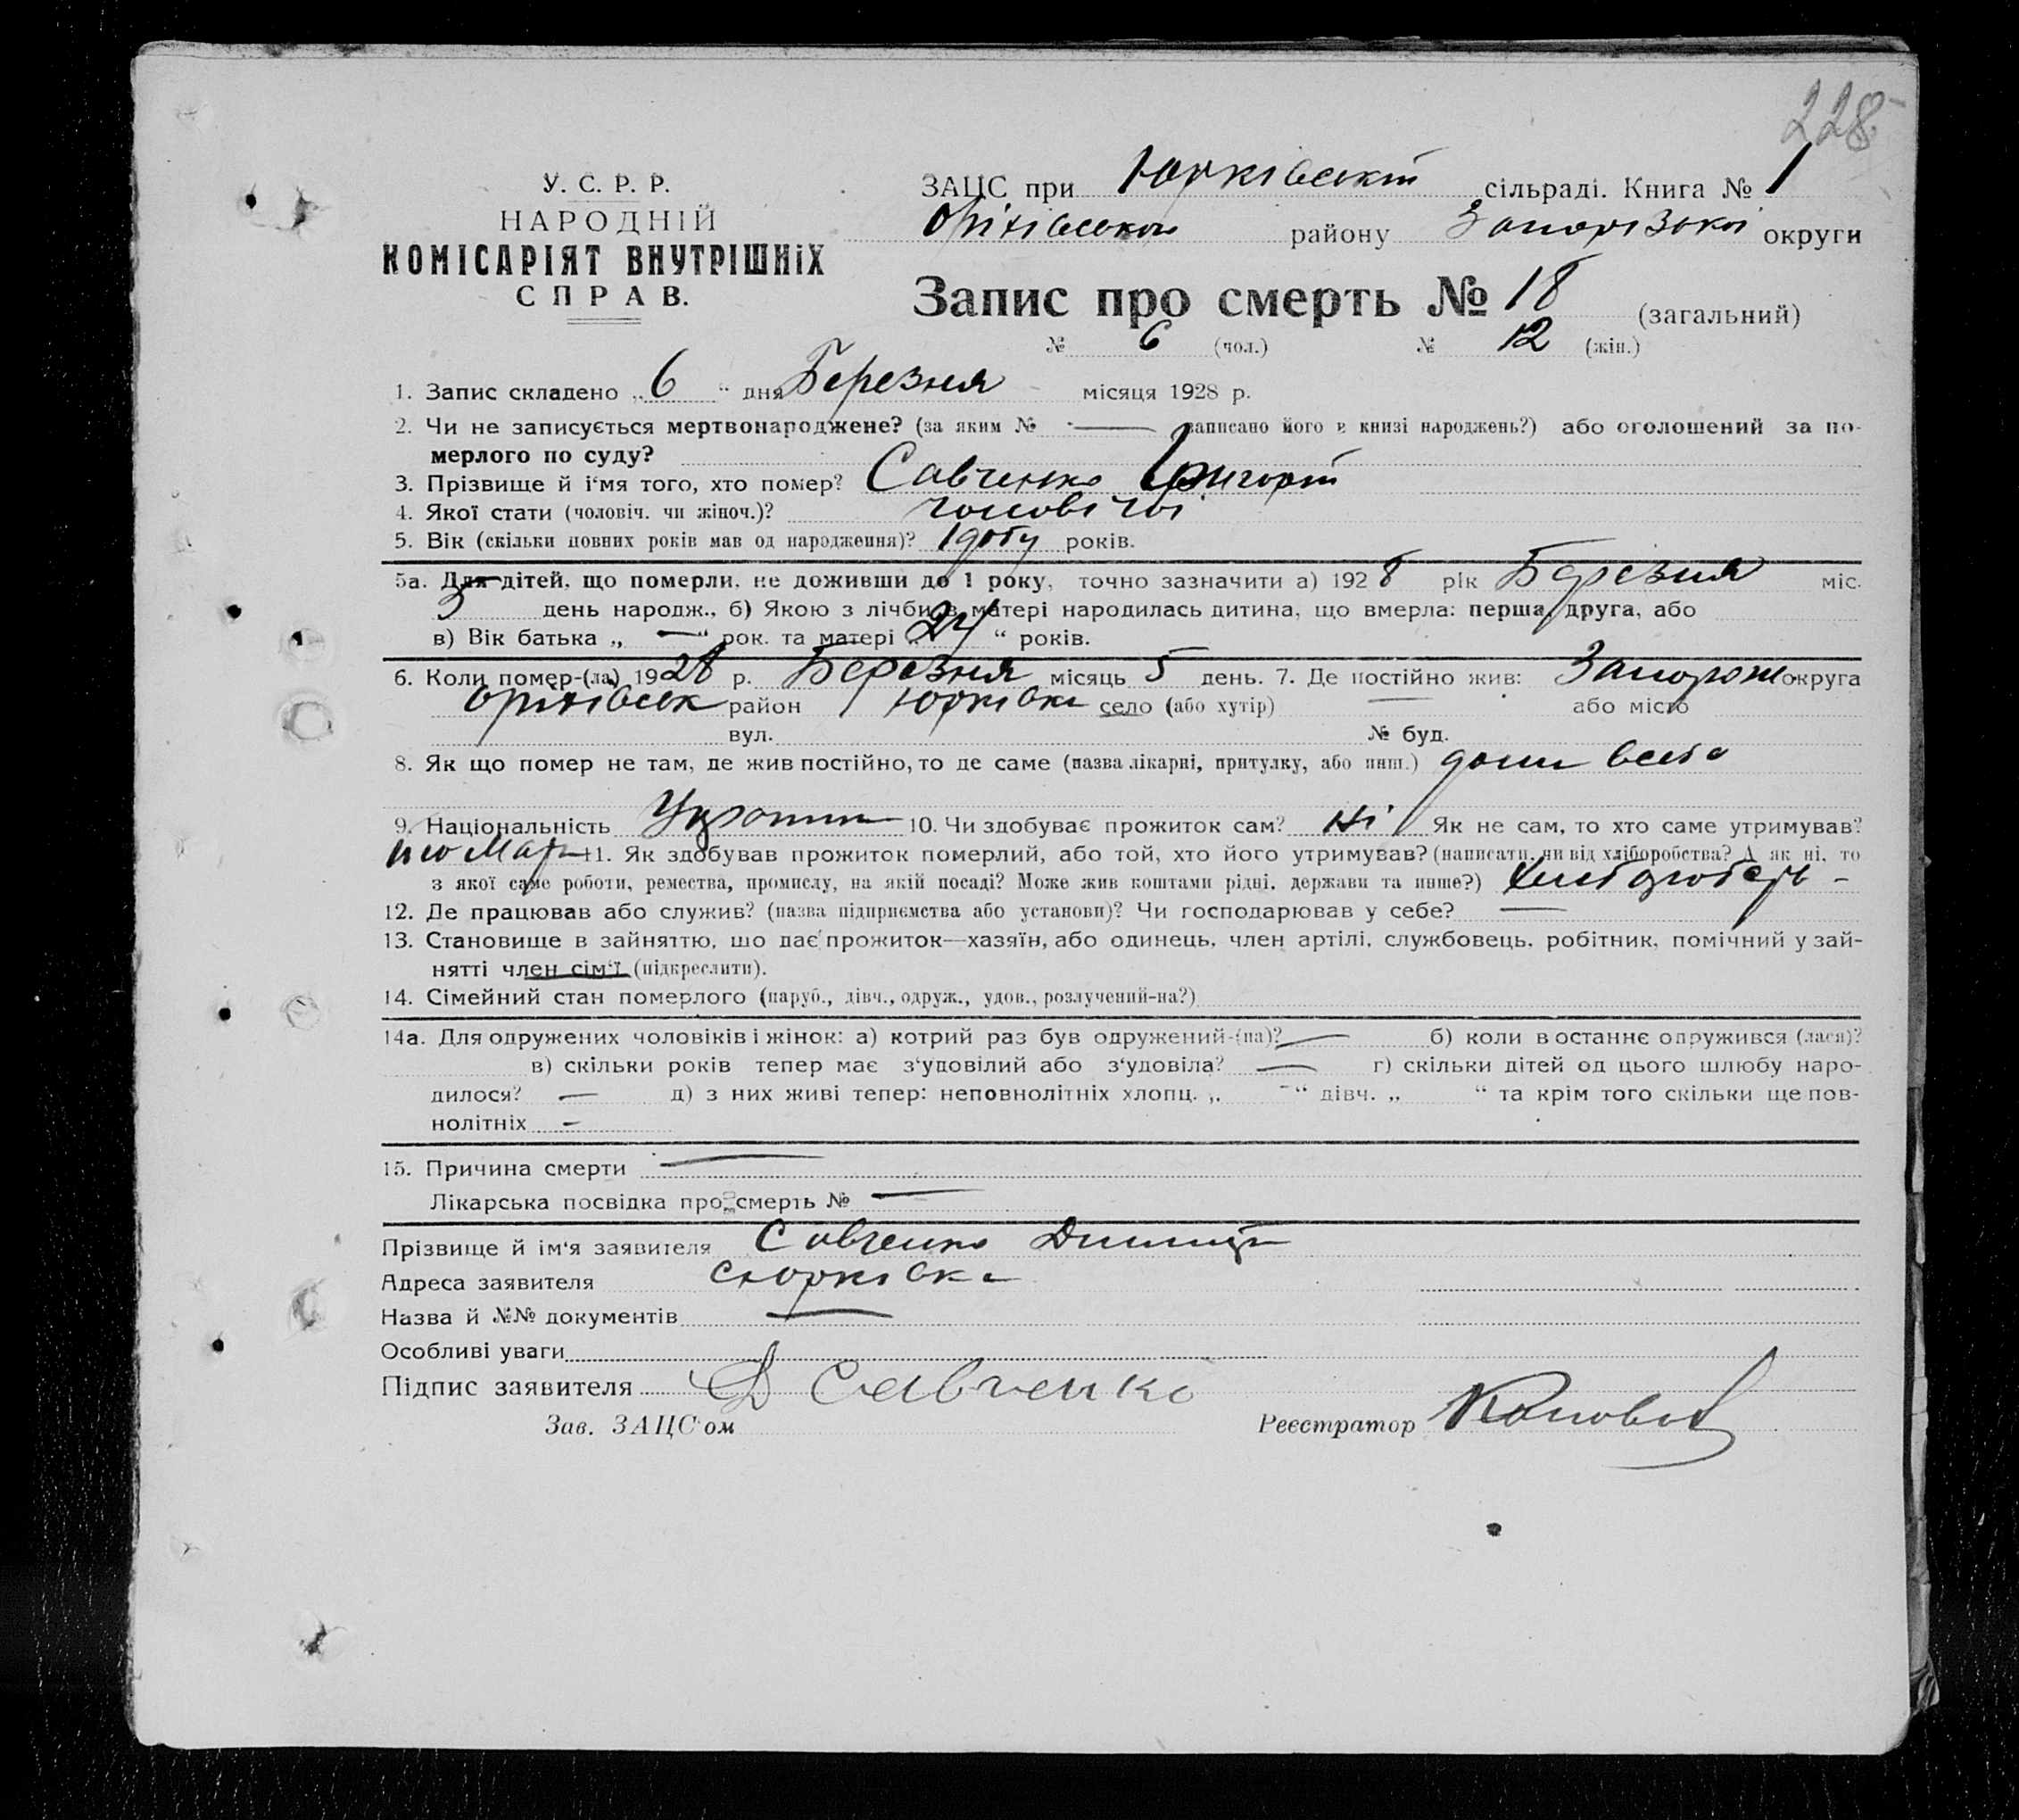 228
У. С. Р. Р.
НАРОДНІЙ
КОМІСАРІЯТ ВНУТРІШНІХ
СПРАВ.
ЗАЦС при Юрківській сільраді. Книга № 1
Оріхівського району Запорізької округи
Запис про смерть № 18 (загальний)
№ 6 (чол.) № 12 (жін.)
1. Запис складено „ 6 “ дня Березня місяця 1928 р.
2. Чи не записується мертвонароджене? (за яким № — записано його в книзі народжень?) або оголошений за по-
мерлого по суду?
3. Прізвище й і‘мя того, хто помер? Савченко Григорій
4. Якої стати (чоловіч. чи жіноч.)? чоловічої
5. Вік (скільки повних років мав од народження)? 1 добу років.
5а. Для дітей, що померли, не доживши до 1 року, точно зазначити а) 1928 рік Березня міс.
день народж., б) Якою з лічби в матері народилась дитина, що вмерла: перша, друга, або
в) Вік батька „ — “ рок. та матері „ 24 “ років.
6. Коли помер-(ла) 1928 р. Березня місяць 5 день. 7. Де постійно жив: Запорож округа
Оріхівськ район Юрківка село (або хутір) — або місто
вул. № буд.
8. Як що помер не там, де жив постійно, то де саме (назва лікарні, притулку, або инш.)
9. Національність 10. Чи здобуває прожиток сам? Ні Як не сам, то хто саме утримував?
11. Як здобував прожиток померлий, або той, хто його утримував? (написати, чи від хліборобства? А як ні, то
з якої саме роботи, ремества, промислу, на якій посаді? Може жив коштами рідні, держави та инше?)
12. Де працював або служив? (назва підприємства або установи)? Чи господарював у себе? —
13. Становище в зайняттю, що дає прожиток—хазяїн, або одинець, член артілі, службовець, робітник, помічний у зай-
нятті член сім‘ї (підкреслити).
14. Сімейний стан померлого (паруб., дівч., одруж., удов., розлучений-на?)
14а. Для одружених чоловіків і жінок: а) котрий раз був одружений-(на)? — б) коли в останнє одружився (лася)?
в) скільки років тепер має з‘удовілий або з‘удовіла? — г) скільки дітей од цього шлюбу наро-
дилося? — д) з них живі тепер: неповнолітніх хлопц. „ - “ дівч. „ “ та крім того скільки ще пов-
нолітніх -
15. Причина смерти —
Лікарська посвідка про смерть № —
Прізвище й ім‘я заявителя Савченко Дмитро
Адреса заявителя с Юрківка
Назва й №№ документів —
Особливі уваги
Підпис заявителя Д Савченко
Зав. ЗАЦС‘ом Реєстратор